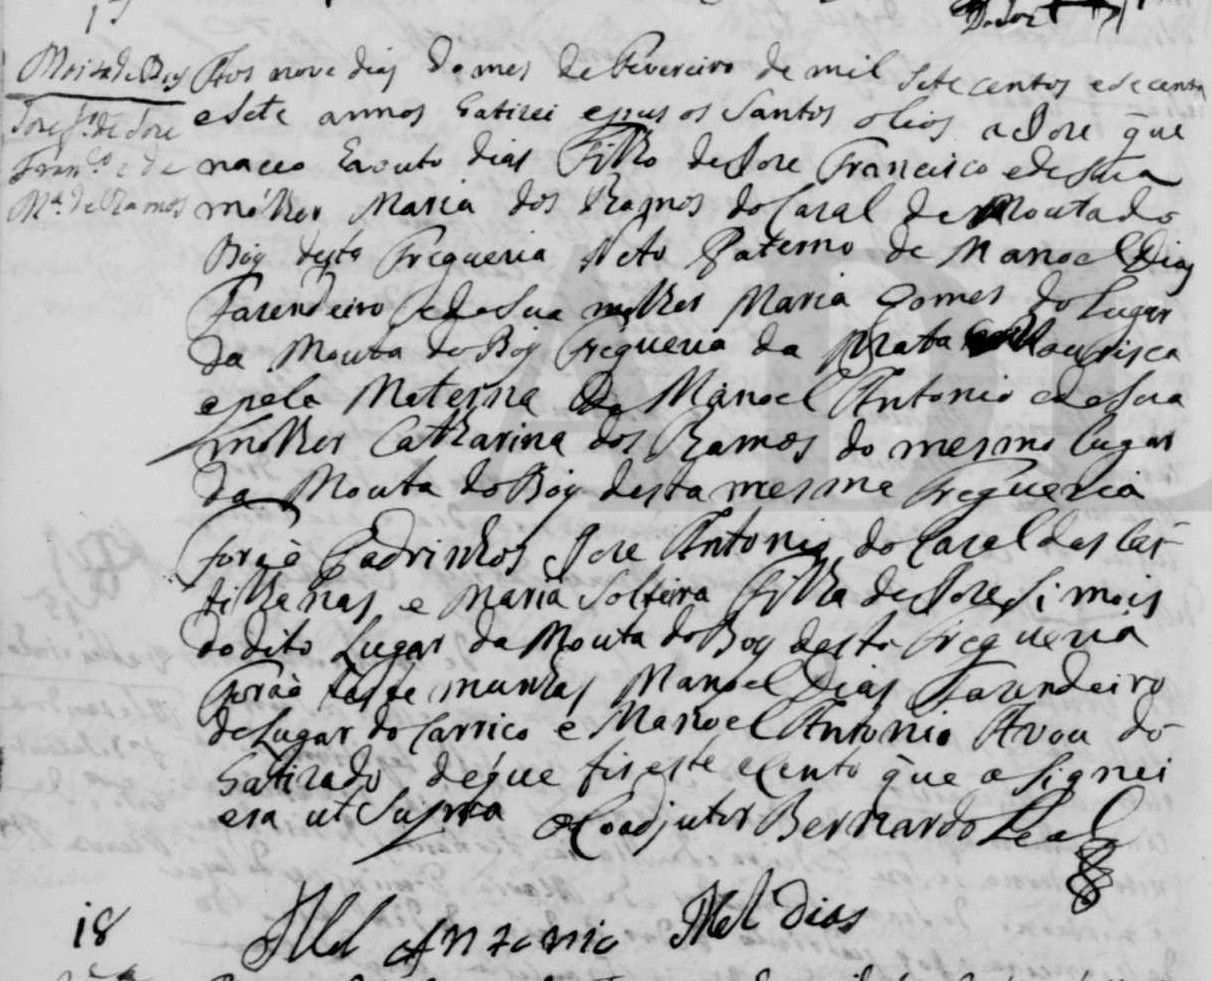 17
Moita do Boy
Jose fº de Jose
Franco e de
Mª de Ramos
Aos nove dias do mes de Fevereiro de mil sete centos e secenta
e sete annos batizei e pus os santos olios a Jose que
naceo haouto dias filho de Jose Francisco e de sua
molher Maria dos Ramos do Casal de Mouta do
Boy desta Freguezia Neto Paterno de Manoel Dias
Fazendeiro e de sua molher Maria Gomes do Lugar
da Mouta do Boy Freguezia da Mata Mourisca
e pela Materna de Manoel Antonio e de sua
molher Catharina dos Ramos do mesmo lugar
da Mouta do Boy desta mesma Freguezia
forão Padrinhos Jose Antonio do Casal das Cas
tilhanas e Maria Solteira filha de Jose Simois
do dito Lugar da Mouta do Boy desta Freguezia
forão tastemunhas Manoel Dias Fazendeiro
do Lugar do Carrico e Manoel Antonio Avou do
batizado de que fis este acento que asignei
era ut Supra o Coadjutor Bernardo Leal
18
Mel Antonio Mel Dias